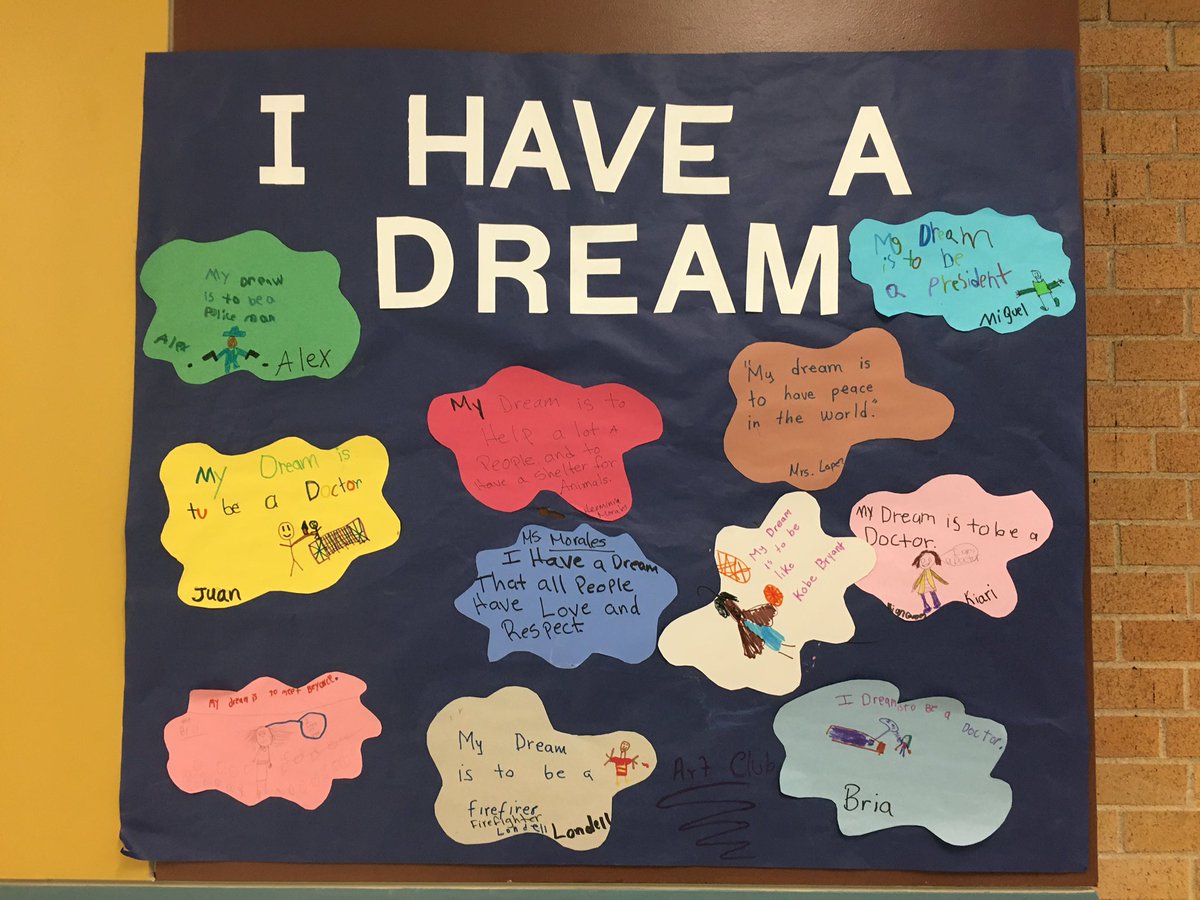 I HAVE A
DREAM
My Dream
is to be a
Police man
Alex
Alex
My Dream
is to be
a president
Miguel
My Dream is to
Help a lot a
People and to
have a shelter for
Animals.
Herminia
Morales
"My dream is
to have peace
in the world."
Mrs. Lopez
My Dream is
tu be a Doctor
Juan
MS Morales
I Have a Dream
That all People
Have Love and
Respect
My Dream
is to be
like
Kobe Bryant
My Dream is to be a
Doctor.
Kiari
My dream is to meet Beyonce.
My Dream
is to be a
firefirer
Firefighter
Londell
Londell
Art Club
I Dream is to BE a Doctor.
Bria